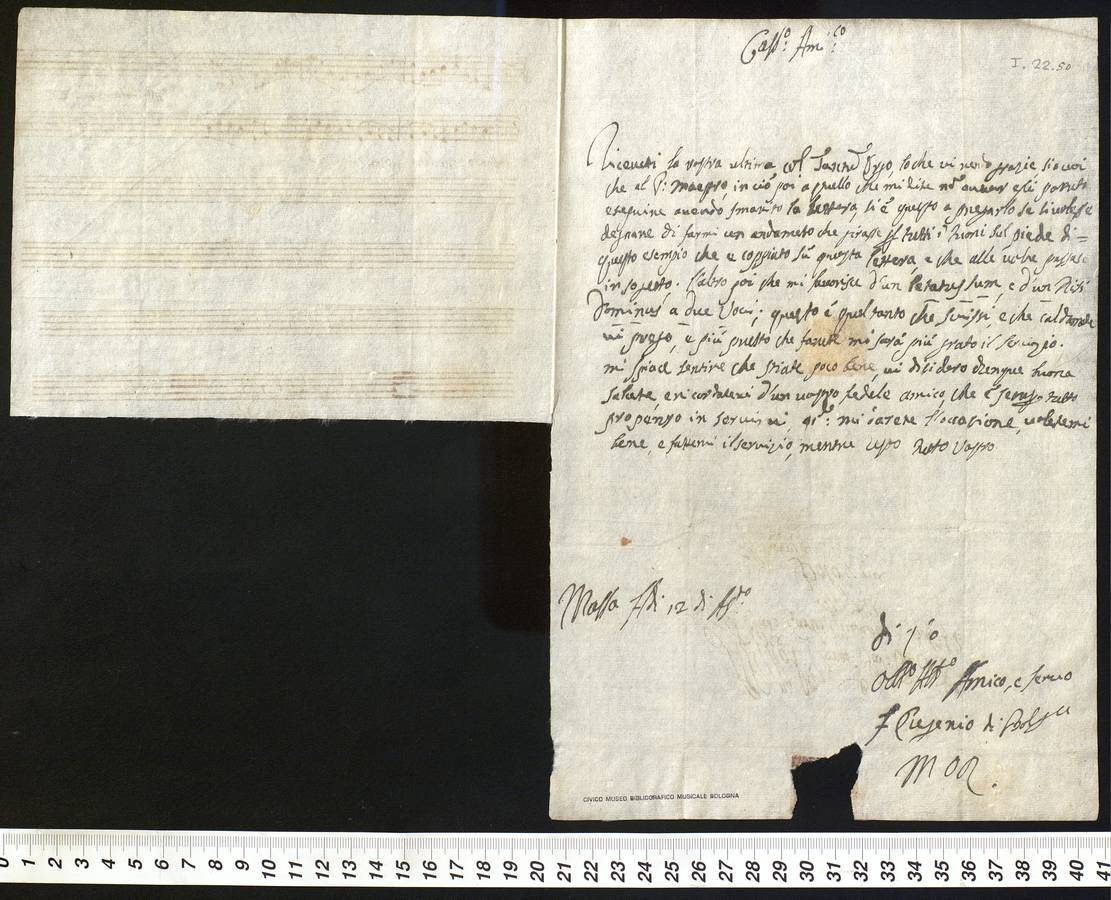 Cass:º Am:ico
I. 22.50
Riceveti la vostra ultima col
che al P: Maestro, in ciò poi a quello che mi dite
eseguire avendo smarito la lettera, si è questo a pregarlo se si volesse
degnare di farmi un andameto che girasse tutti i Tuoni sul piede di =
questo esempio che è coppiato sù questa lettera, e che alle volte passasse
in sopesto. L'altro poi che mi favorisce d'un Letatus sum, e d'un Nisi
Dominus a due Voci; questo è quel tanto che scrissi, e che caldamete
vi prego, e più presto che farete mi sarà più grato il servizio.
mi spiace sentire che stiate poco bene, vi desidero dunque buona
salute, e ricordatevi d'un vostro fedele amico, che è sempre tutto
propenso in servirvi, mi darete l'occasione, voletemi
bene, e fattemi il servizio, mentre resto Tutto Vostro
Massa Adi 12 di Ag:to
di
Amico, e servo
F Eugenio di
M O R.
CIVICO MUSEO BIBLIOGRAFICO MUSICALE BOLOGNA
0 1 2 3 4 5 6 7 8 9 10 11 12 13 14 15 16 17 18 19 20 21 22 23 24 25 26 27 28 29 30 31 32 33 34 35 36 37 38 39 40 41